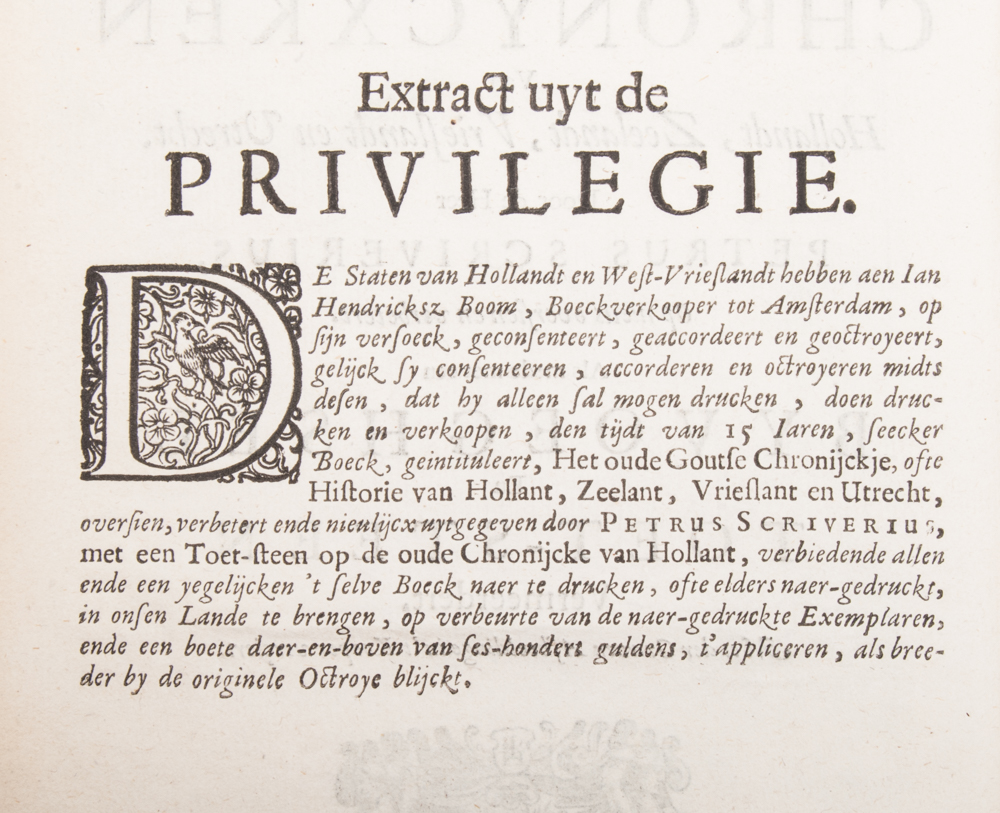 Extract uyt de
PRIVILEGIE.
DE Staten van Hollandt en West-Vrieslandt hebben aen Ian
Hendricksz Boom, Boeckverkooper tot Amsterdam, op
sijn versoeck, geconsenteert, geaccordeert en geoctroyeert,
gelijck sy consenteeren, accorderen en octroyeren midts
desen, dat hy alleen sal mogen drucken, doen druc-
ken en verkoopen, den tijdt van 15 Iaren, seecker
Boeck, geintituleert, Het oude Goutse Chronijckje, ofte
Historie van Hollant, Zeelant, Vrieslant en Utrecht,
oversien, verbetert ende nieulijcx uytgegeven door PETRUS SCRIVERIUS,
met een Toet-steen op de oude Chronijcke van Hollant, verbiedende allen
ende een yegelijcken 't selve Boeck naer te drucken, ofte elders naer-gedruckt,
in onsen Lande te brengen, op verbeurte van de naer-gedruckte Exemplaren,
ende een boete daer-en-boven van ses-hondert guldens, t'appliceren, als bree-
der by de originele Octroye blijckt.